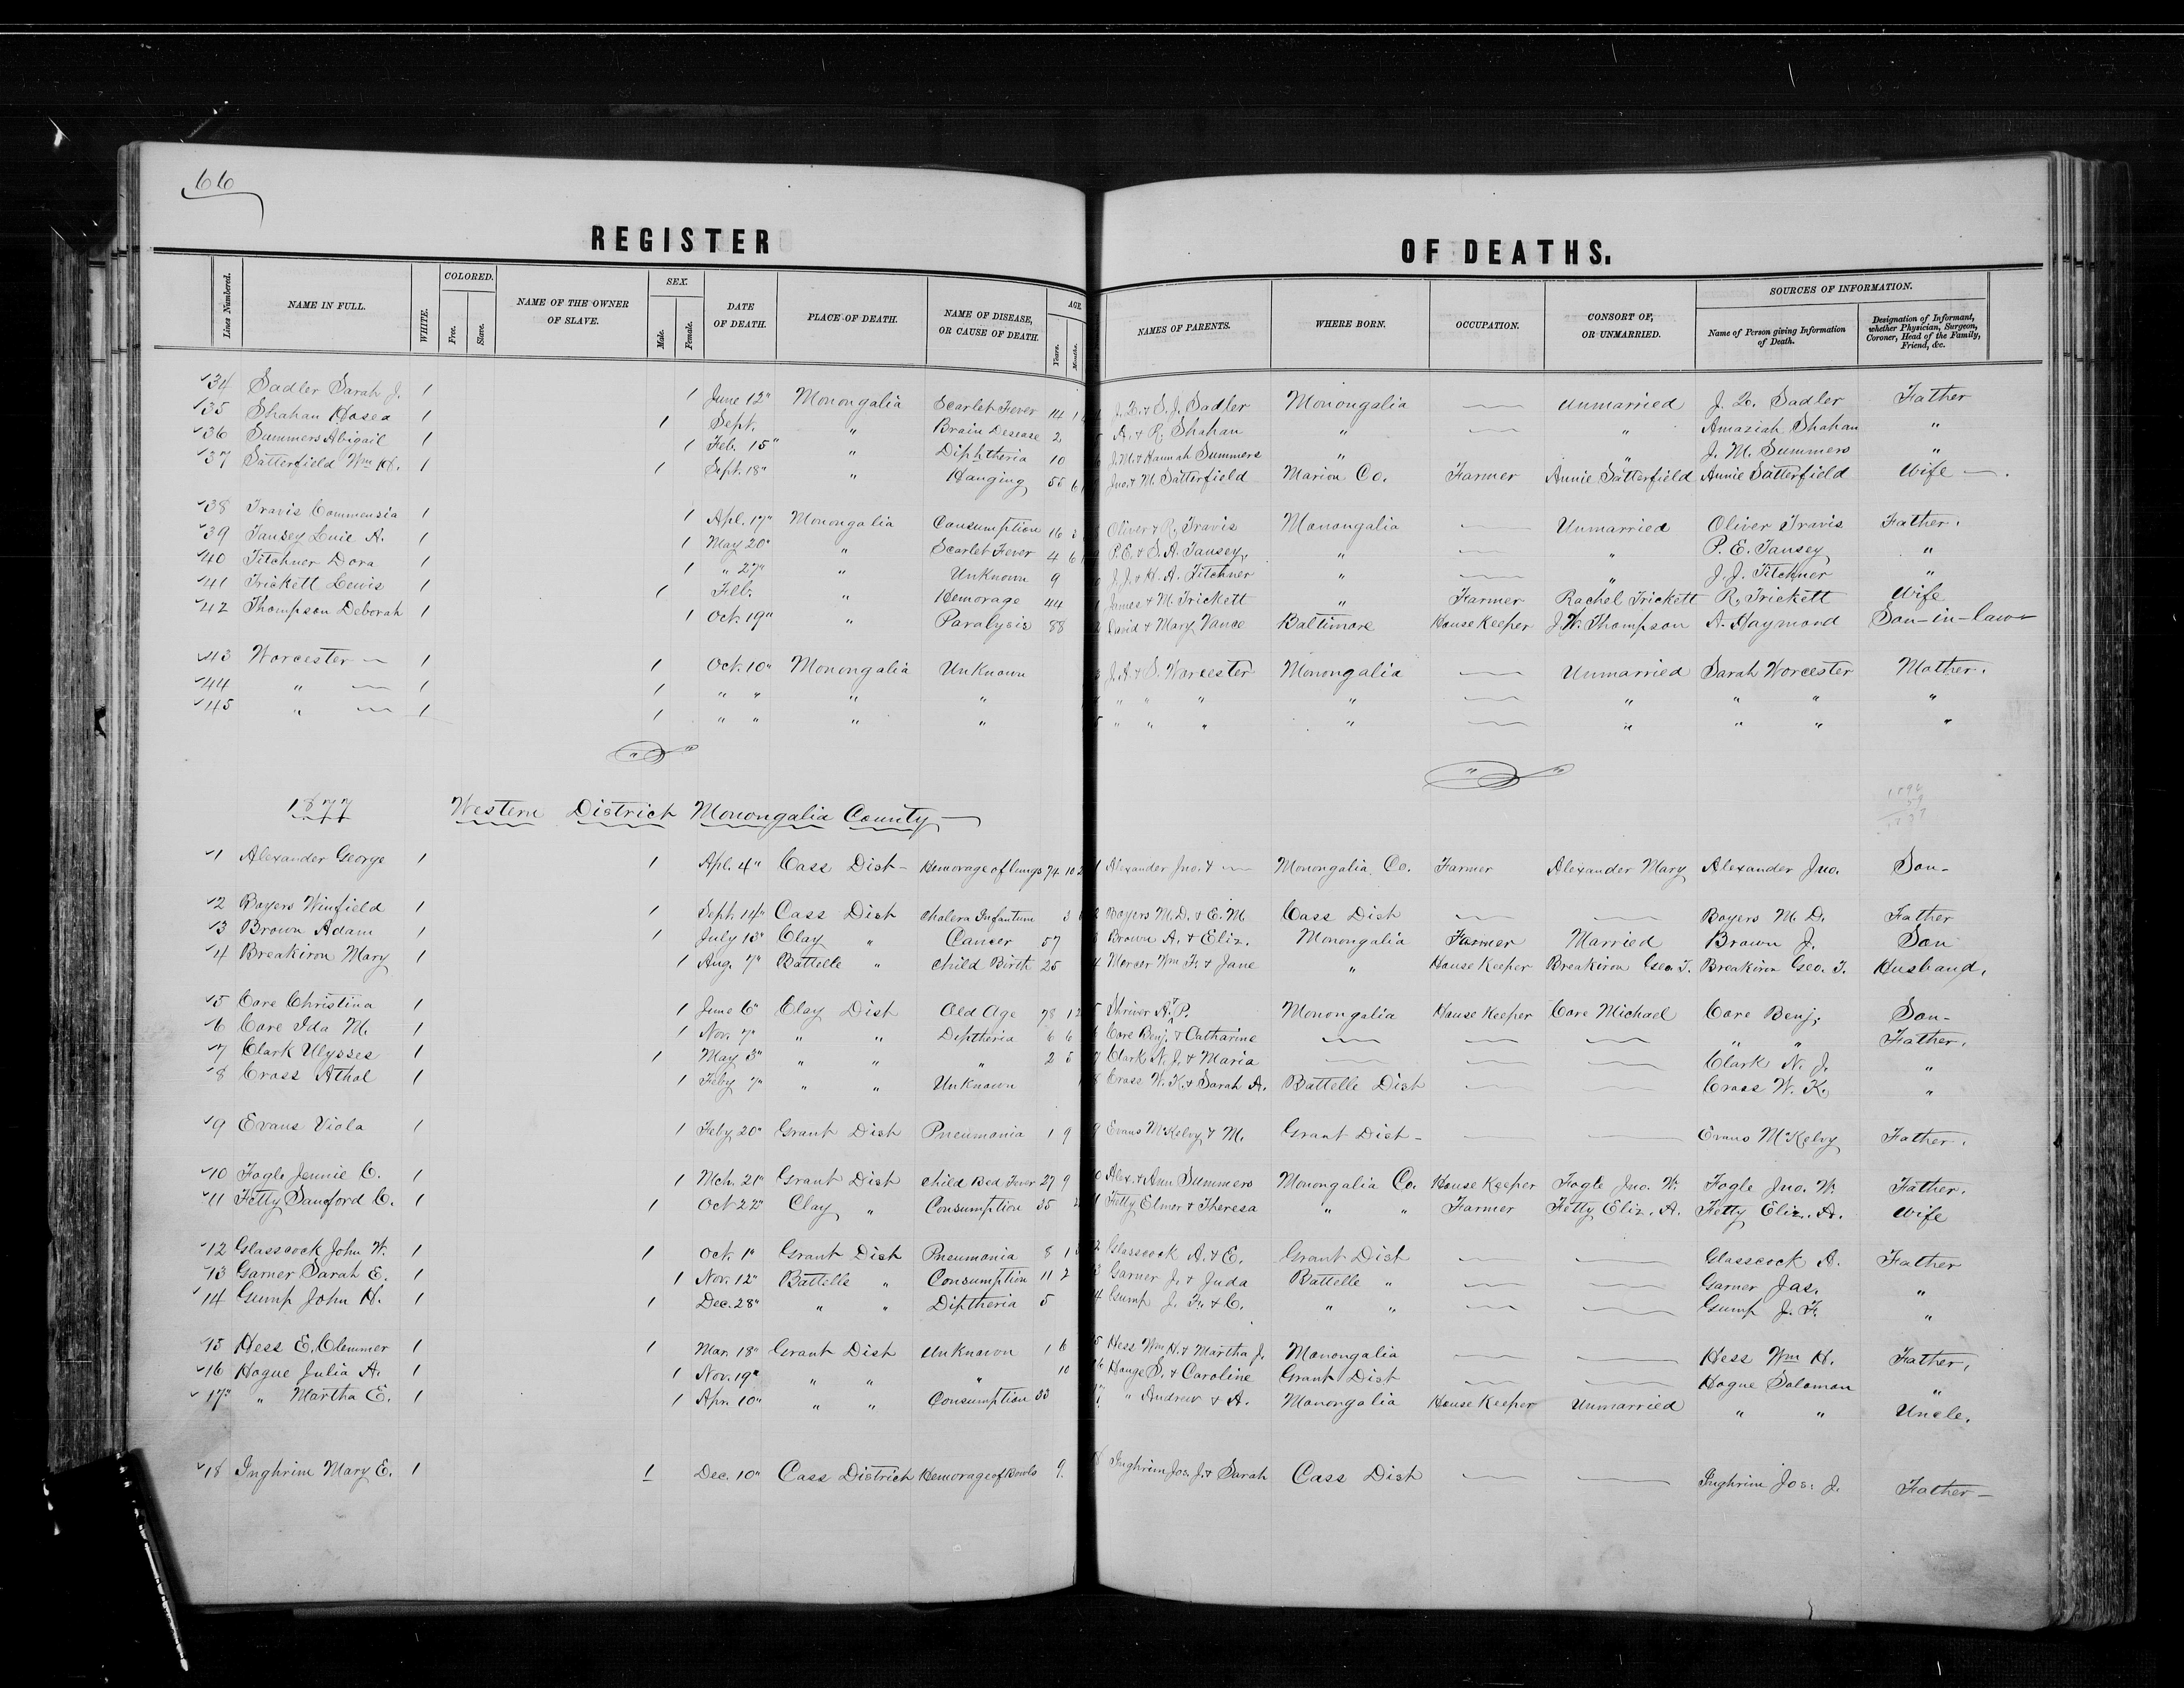 66
REGISTER OF DEATHS.
Lines Numbered. NAME IN FULL. WHITE. COLORED. Free. Slave. NAME OF THE OWNER OF SLAVE. SEX. Male. Female. DATE OF DEATH. PLACE OF DEATH. NAME OF DISEASE, OR CAUSE OF DEATH. AGE Years. Months. NAMES OF PARENTS. WHERE BORN. OCCUPATION. CONSORT OF, OR UNMARRIED. SOURCES OF INFORMATION. Name of Person giving Information of Death. Designation of Informant, whether Physician, Surgeon, Coroner, Head of the Family, Friend, &c.
34 Sadler Sarah J. 1 1 June 12" Monongalia Scarlet Fever 14 1 & S. J. Sadler Monongalia — Unmarried Sadler Father
35 Shahan Hosea 1 1 Sept. " Brain Desease 2 A. & R. Shahan " — " Amaziah Shahan "
36 Summers Abigail 1 1 Feb. 15" " Diphtheria 10 J. M. & Hannah Summers " " J. M. Summers "
37 Satterfield Wm H. 1 1 Sept. 18" " Hanging 55 6 Jno. & M. Satterfield Marion Co. Farmer Annie Satterfield Annie Satterfield Wife —.
38 Travis Commensia 1 1 Apl. 17" Monongalia Consumption 16 Oliver & R. Travis Monongalia — Unmarried Oliver Travis Father.
39 Tansey Luie A. 1 1 May 20" " Scarlet Fever 4 6 P. E. & S. A. Tansey, " — " P. E. Tansey "
40 Titchner Dora 1 1 " 27" " Unknown 9 J. J. & H. A. Titchner " — J. J. Titchner "
41 Trickett Lewis 1 1 Feb. " Hemorage 44 James & M. Trickett " Farmer Rachel Trickett R. Trickett Wife
42 Thompson Deborah 1 1 Oct. 19" " Paralysis 88 David & Mary Vance Baltimore House Keeper J. W. Thompson A. Haymond Son-in-law
43 Worcester — 1 1 Oct. 10" Monongalia Unknown J. A. & S. Worcester Monongalia — Unmarried Sarah Worcester Mother.
44 " — 1 1 " " " " " " " " — " " " "
45 " — 1 1 " " " " " " " " — " " " "
1877 Western District Monongalia County —
1 Alexander George 1 1 Apl. 4" Cass Dist — Hemorage of lungs 74 10 Alexander Jno. & — Monongalia Co. Farmer Alexander Mary Alexander Jno. Son-
2 Boyers Winfield 1 1 Sept. 14" Cass Dist Cholera Infantum 3 Boyers M. D. & E. M. Cass Dist — — Boyers M. D. Father
3 Brown Adam 1 1 July 13" Clay " Cancer 57 Brown A. & Eliz. Monongalia Farmer Married Brown J. Son
4 Breakiron Mary 1 1 Aug. 7" Battelle " Child Birth 25 4 Mercer Wm F. & Jane " House Keeper Breakiron Geo. T. Breakiron Geo. T. Husband.
5 Core Christina 1 1 June 6" Clay Dist Old Age 78 1 Shriver A. & P. Monongalia House Keeper Core Michael Core Benj. Son-
6 Core Ida M. 1 1 Nov. 7" " " Diptheria 6 6 Core Benj. & Catharine — — — " " Father.
7 Clark Ulysses 1 1 May 3" " " " 2 5 Clark N. J. & Maria — — — Clark N. J. "
8 Cross Athol 1 1 Feby 7" " " Unknown 8 Cross W. K. & Sarah A. Battelle Dist — — Cross W. K. "
9 Evans Viola 1 1 Feby 20" Grant Dist Pneumonia 1 9 9 Evans McKelvy & M. Grant Dist- — — Evans McKelvy Father.
10 Fogle Jennie C. 1 1 Mch. 21" Grant Dist Child Bed Fever 27 9 Alex. & Ann Summers Monongalia Co. House Keeper Fogle Jno. W. Fogle Jno. W. Father.
11 Fetty Sanford C. 1 1 Oct 22" Clay " Consumption 35 Fetty Elmer & Theresa " " Farmer Fetty Eliz. A. Fetty Eliz. A. Wife
12 Glasscock John W. 1 1 Oct. 1" Grant Dist Pneumonia 8 1 2 Glasscock A. & E. Grant Dist — — Glasscock A. Father
13 Garner Sarah E. 1 1 Nov. 12" Battelle " Consumption 11 2 3 Garner J. & Juda Battelle " — — Garner Jas. "
14 Gump John H. 1 1 Dec. 28" " " Diptheria 5 4 Gump J. F. & C. " " — — Gump J. F. "
15 Hess E. Clemmer 1 1 Mar. 18" Grant Dist Unknown 1 6 5 Hess Wm H. & Martha J. Monongalia — — Hess Wm H. Father.
16 Hogue Julia A. 1 1 Nov. 19" " " " 10 6 Hauge S. & Caroline Grant Dist — — Hogue Solomon "
17 " Martha E. 1 1 Apr. 10" " " Consumption 33 " Andrew & A. Monongalia House Keeper Unmarried " " Uncle.
18 Inghrim Mary E. 1 1 Dec. 10" Cass District Hemorage of Bowls 9. 8 Inghrim Jos. J. & Sarah Cass Dist — — Inghrim Jos. J. Father—